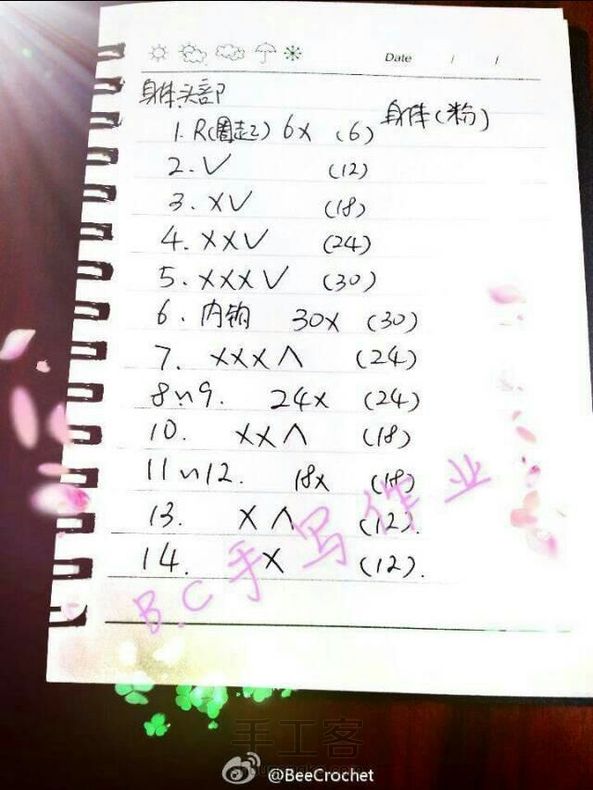 Date / /
身体头部
身体(粉)
1. R(圈起) 6x (6)
2. V (12)
3. XV (18)
4. XXV (24)
5. XXXV (30)
6. 内钩 30x (30)
7. XXXΛ (24)
8~9. 24x (24)
10. XXΛ (18)
11~12. 18x (18)
13. XΛ (12).
14. X (12).
B.C手写作业
手工客
@BeeCrochet